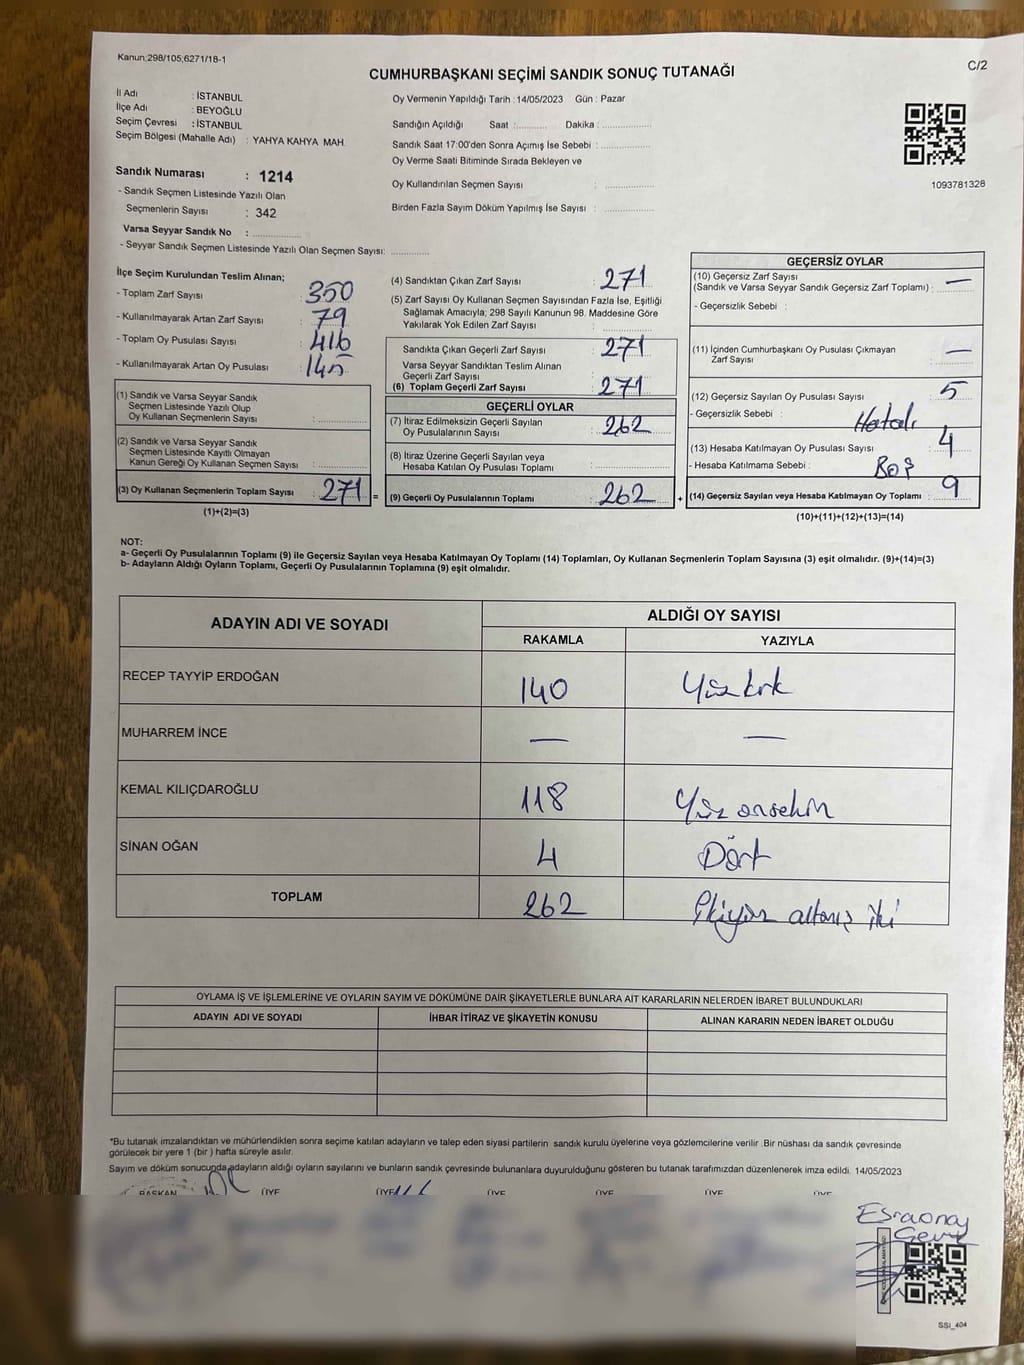 Kanun;298/105;6271/18-1
CUMHURBAŞKANI SEÇİMİ SANDIK SONUÇ TUTANAĞI
C/2
İl Adı : İSTANBUL
İlçe Adı : BEYOĞLU
Seçim Çevresi : İSTANBUL
Seçim Bölgesi (Mahalle Adı) : YAHYA KAHYA MAH.
Sandık Numarası : 1214
- Sandık Seçmen Listesinde Yazılı Olan
Seçmenlerin Sayısı : 342
Varsa Seyyar Sandık No : ............
- Seyyar Sandık Seçmen Listesinde Yazılı Olan Seçmen Sayısı: ............
Oy Vermenin Yapıldığı Tarih : 14/05/2023 Gün : Pazar
Sandığın Açıldığı Saat :.......... Dakika : ................
Sandık Saat 17:00'den Sonra Açımış İse Sebebi : ................
Oy Verme Saati Bitiminde Sırada Bekleyen ve
Oy Kullandırılan Seçmen Sayısı : ................
Birden Fazla Sayım Döküm Yapılmış İse Sayısı : ................
1093781328
İlçe Seçim Kurulundan Teslim Alınan;
- Toplam Zarf Sayısı : 350
- Kullanılmayarak Artan Zarf Sayısı : 79
- Toplam Oy Pusulası Sayısı : 416
- Kullanılmayarak Artan Oy Pusulası : 145
(1) Sandık ve Varsa Seyyar Sandık
Seçmen Listesinde Yazılı Olup
Oy Kullanan Seçmenlerin Sayısı : ................
(2) Sandık ve Varsa Seyyar Sandık
Seçmen Listesinde Kayıtlı Olmayan
Kanun Gereği Oy Kullanan Seçmen Sayısı : ................
(3) Oy Kullanan Seçmenlerin Toplam Sayısı : 271 =
(1)+(2)=(3)
(4) Sandıktan Çıkan Zarf Sayısı : 271
(5) Zarf Sayısı Oy Kullanan Seçmen Sayısından Fazla İse, Eşitliği
Sağlamak Amacıyla; 298 Sayılı Kanunun 98. Maddesine Göre
Yakılarak Yok Edilen Zarf Sayısı : ................
Sandıkta Çıkan Geçerli Zarf Sayısı : 271
Varsa Seyyar Sandıktan Teslim Alınan
Geçerli Zarf Sayısı : ................
(6) Toplam Geçerli Zarf Sayısı : 271
GEÇERLİ OYLAR
(7) İtiraz Edilmeksizin Geçerli Sayılan
Oy Pusulalarının Sayısı : 262
(8) İtiraz Üzerine Geçerli Sayılan veya
Hesaba Katılan Oy Pusulası Toplamı : ................
(9) Geçerli Oy Pusulalarının Toplamı : 262 +
GEÇERSİZ OYLAR
(10) Geçersiz Zarf Sayısı
(Sandık ve Varsa Seyyar Sandık Geçersiz Zarf Toplamı) : —
- Geçersizlik Sebebi :
(11) İçinden Cumhurbaşkanı Oy Pusulası Çıkmayan
Zarf Sayısı : —
(12) Geçersiz Sayılan Oy Pusulası Sayısı : 5
- Geçersizlik Sebebi : Hatalı
(13) Hesaba Katılmayan Oy Pusulası Sayısı : 4
- Hesaba Katılmama Sebebi : Boş
(14) Geçersiz Sayılan veya Hesaba Katılmayan Oy Toplamı : 9
(10)+(11)+(12)+(13)=(14)
NOT:
a- Geçerli Oy Pusulalarının Toplamı (9) ile Geçersiz Sayılan veya Hesaba Katılmayan Oy Toplamı (14) Toplamları, Oy Kullanan Seçmenlerin Toplam Sayısına (3) eşit olmalıdır. (9)+(14)=(3)
b- Adayların Aldığı Oyların Toplamı, Geçerli Oy Pusulalarının Toplamına (9) eşit olmalıdır.
ADAYIN ADI VE SOYADI
ALDIĞI OY SAYISI
RAKAMLA YAZIYLA
RECEP TAYYİP ERDOĞAN 140 Yüz kırk
MUHARREM İNCE — —
KEMAL KILIÇDAROĞLU 118 Yüz onsekiz
SİNAN OĞAN 4 Dört
TOPLAM 262 İkiyüz altmış iki
OYLAMA İŞ VE İŞLEMLERİNE VE OYLARIN SAYIM VE DÖKÜMÜNE DAİR ŞİKAYETLERLE BUNLARA AİT KARARLARIN NELERDEN İBARET BULUNDUKLARI
ADAYIN ADI VE SOYADI İHBAR İTİRAZ VE ŞİKAYETİN KONUSU ALINAN KARARIN NEDEN İBARET OLDUĞU
*Bu tutanak imzalandıktan ve mühürlendikten sonra seçime katılan adayların ve talep eden siyasi partilerin sandık kurulu üyelerine veya gözlemcilerine verilir .Bir nüshası da sandık çevresinde
görülecek bir yere 1 (bir ) hafta süreyle asılır.
Sayım ve döküm sonucunda adayların aldığı oyların sayılarını ve bunların sandık çevresinde bulunanlara duyurulduğunu gösteren bu tutanak tarafımızdan düzenlenerek imza edildi. 14/05/2023
BAŞKAN ÜYE ÜYE ÜYE ÜYE ÜYE ÜYE
SSI_404